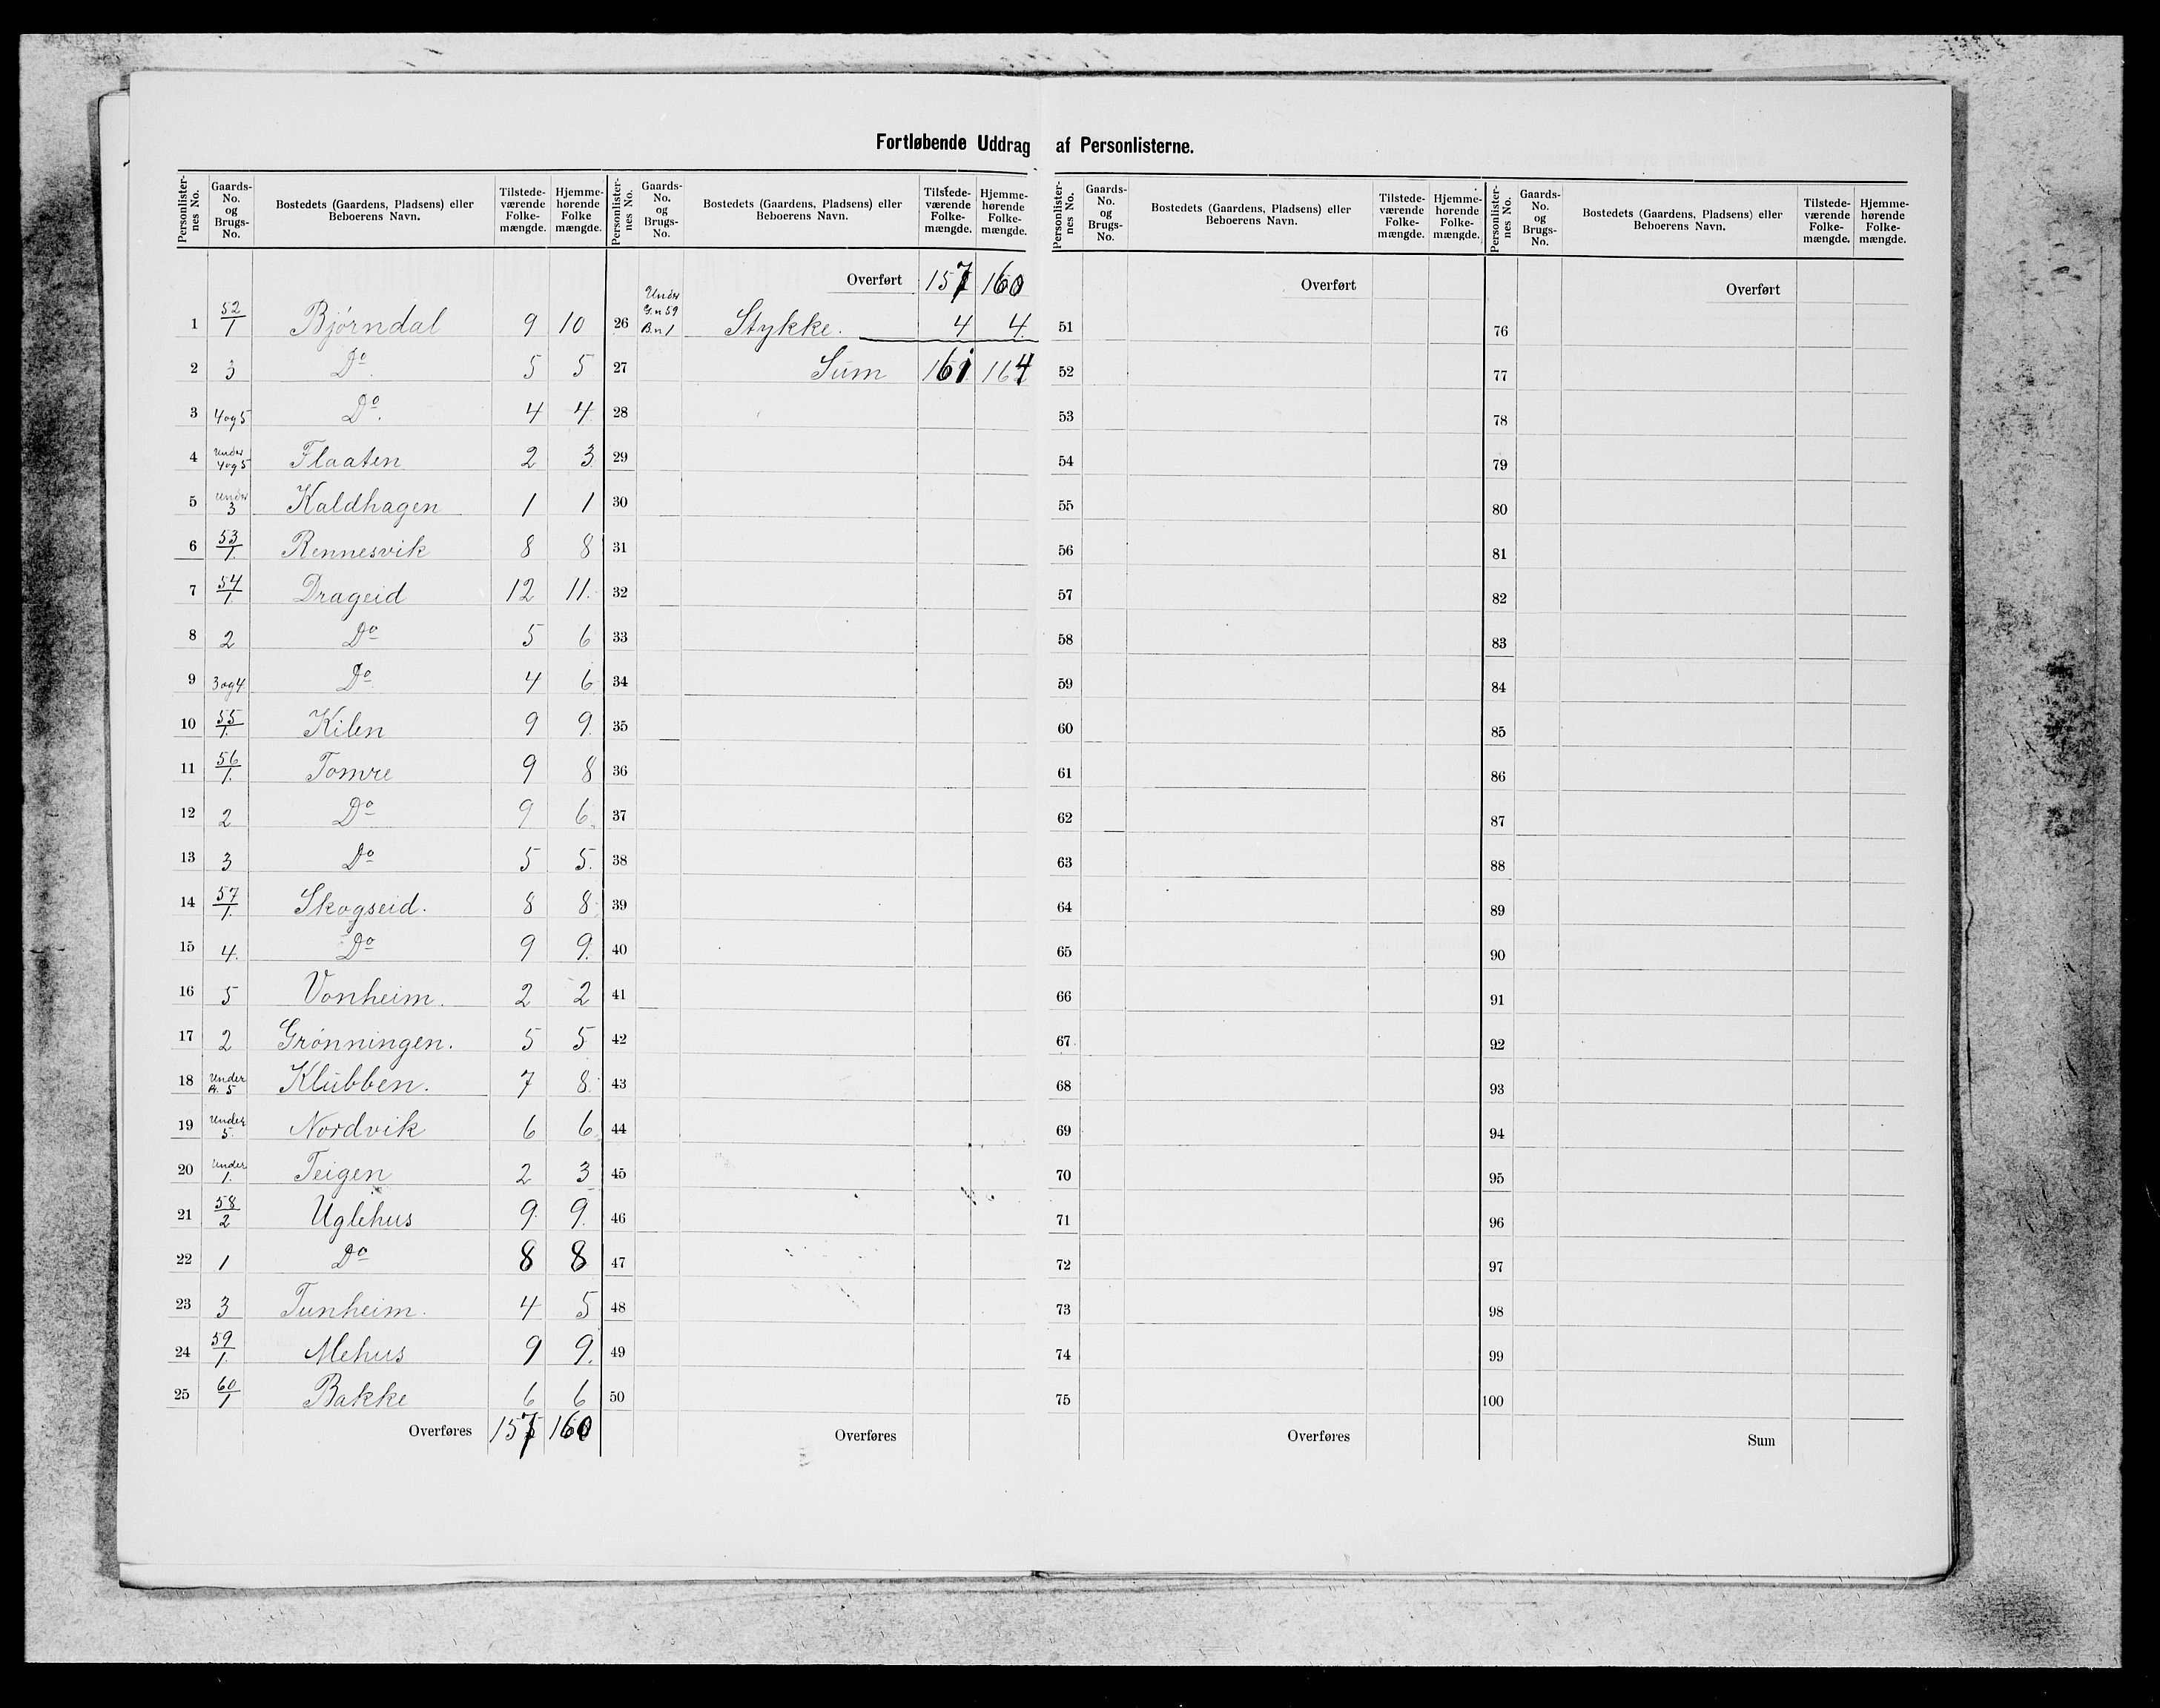 Fortløbende Uddrag af Personlisterne.
Personlister-nes No. Gaards-No. og Brugs-No. Bostedets (Gaardens, Pladsens) eller Beboerens Navn. Tilstede-værende Folke-mængde. Hjemme-hørende Folke mængde.
1 52/1 Bjørndal 9 10
2 3 Do. 5 5
3 4og5 Do. 4 4
4 Under 4og5 Flaaten 2 3
5 Under 3 Kaldhagen 1 1
6 53/1. Rennesvik 8 8
7 54/1. Drageid 12 11.
8 2 Do 5 6
9 3og4 Do 4 6
10 55/1. Kilen 9 9.
11 56/1. Tomre 9 8
12 2 Do 9 6.
13 3 Do 5 5.
14 57/1. Skogseid. 8 8
15 4. Do 9 9.
16 5 Vonheim. 2 2
17 2 Grønningen. 5 5
18 Under 5 Klubben. 7 8
19 Under 5. Nordvik 6 6
20 Under 1. Teigen 2 3
21 58/2 Uglehus 9. 9.
22 1 Do 8 8
23 3 Tunheim. 4 5
24 59/1. Mehus 9 9.
25 60/1 Bakke 6 6
Overføres 157 160
Personlister-nes No. Gaards-No. og Brugs-No. Bostedets (Gaardens, Pladsens) eller Beboerens Navn. Tilstede-værende Folke-mængde. Hjemme-hørende Folke-mængde.
Overført 157 160
26 Under G.n 59 B.n 1 Stykke. 4 4
27 Sum 161 164
28
29
30
31
32
33
34
35
36
37
38
39
40
41
42
43
44
45
46
47
48
49
50
Overføres
Personlister-nes No. Gaards-No. og Brugs-No. Bostedets (Gaardens, Pladsens) eller Beboerens Navn. Tilstede-værende Folke-mængde. Hjemme-hørende Folke-mængde.
Overført
51
52
53
54
55
56
57
58
59
60
61
62
63
64
65
66
67
68
69
70
71
72
73
74
75
Overføres
Personlister-nes No. Gaards-No. og Brugs-No. Bostedets (Gaardens, Pladsens) eller Beboerens Navn. Tilstede-værende Folke-mængde. Hjemme-hørende Folke-mængde.
Overført
76
77
78
79
80
81
82
83
84
85
86
87
88
89
90
91
92
93
94
95
96
97
98
99
100
Sum